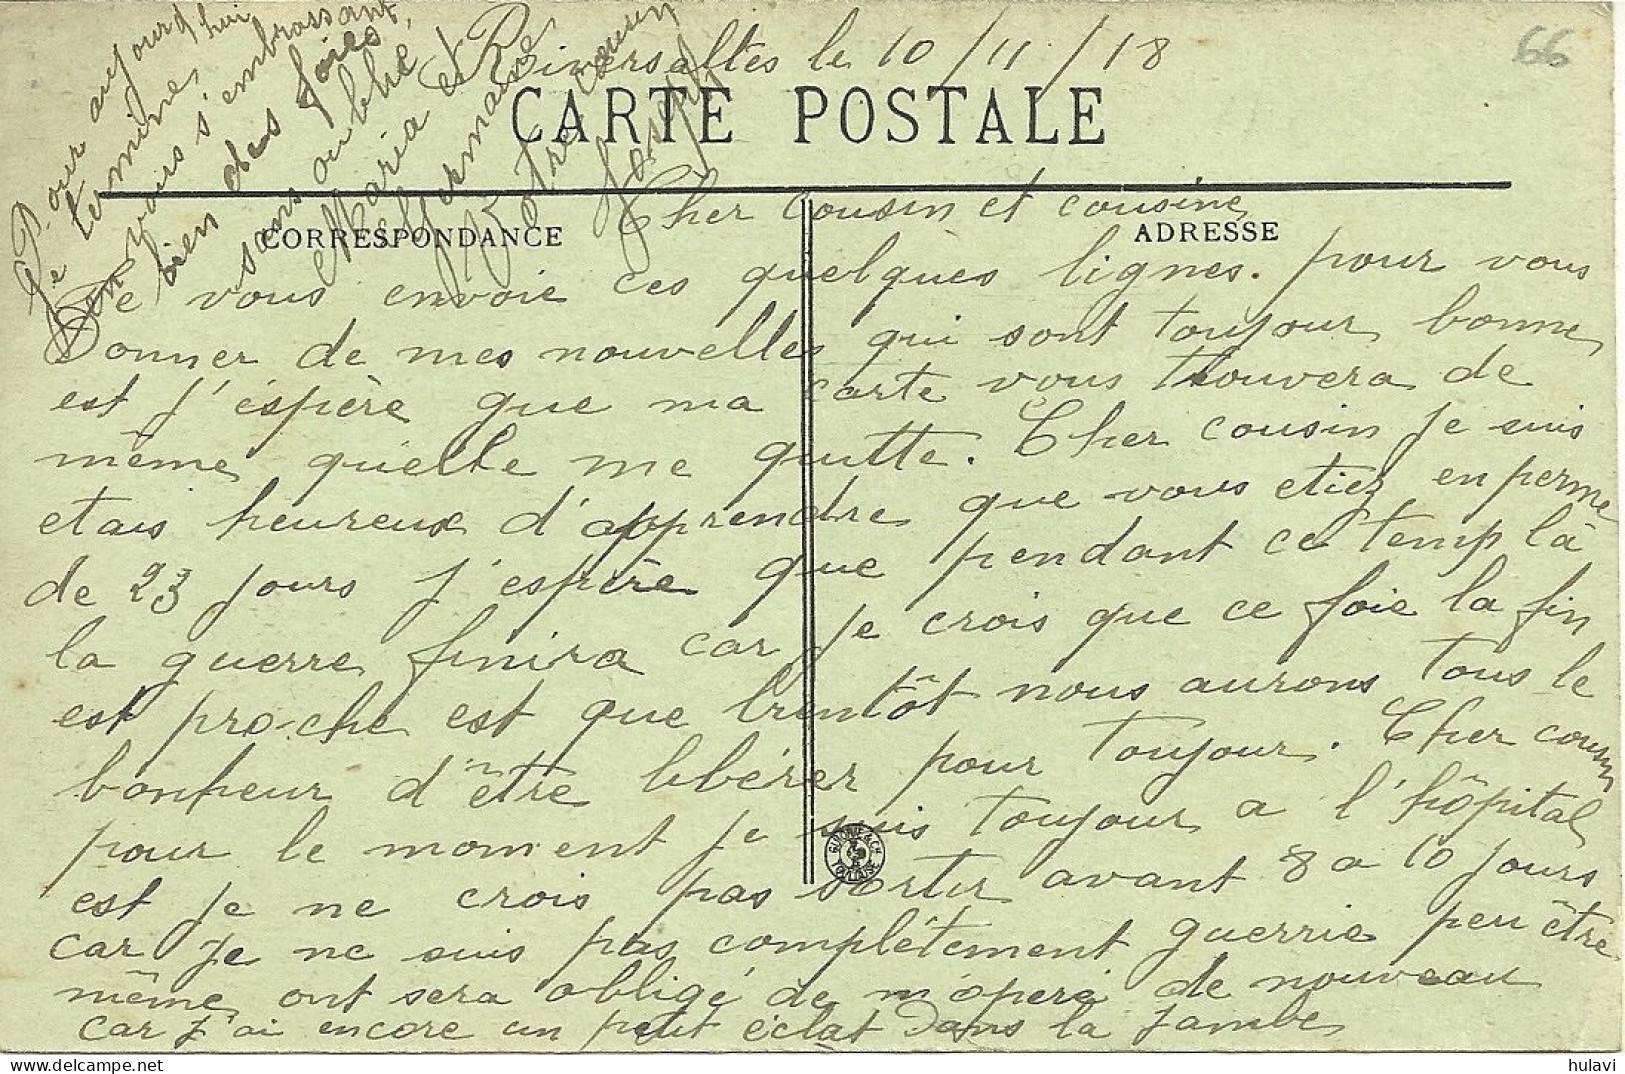 Riversaltes le 10/11/18
66
CARTE POSTALE
CORRESPONDANCE
ADRESSE
Cher cousin et cousine
Je vous envoie ces quelques lignes. pour vous
Donner de mes nouvelles qui sont toujour bonne
est j'éspère que ma carte vous trouvera de
même quielle me quitte. Cher cousin je suis
etais heureux d'apprendre que vous etiez en perme
de 23 jours j'espère que pendant ce temp là
la guerre finira car je crois que ce foie la fin
est proche est que bientôt nous aurons tous le
bonheur d'être libérer pour toujour. Cher cousin
pour le moment je suis toujour a l'hôpital
est je ne crois pas sortir avant 8 a 10 jours
car je ne suis pas complètement guerrie peu être
même ont sera obligé de m'opéré de nouveau
car j'ai encore un petit éclat Dans la jambe
Pour aujourd'hui
Je termine,
en vous s'embrassant,
bien des foies
sans oublié
Maria et
Germaine
Votre cousin
Joseph
GUIONIE & CH
TOULOUSE
hulavi